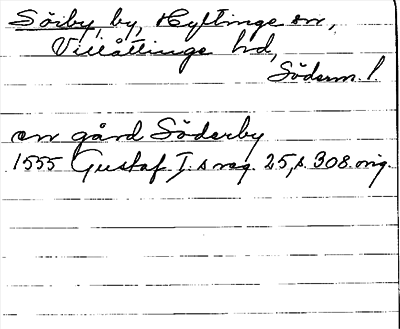 Sörby, by, Hyltinge sn,
Villåttinge hd,
Söderm. l.
en gård Söderby
1555 Gustaf I:s reg. 25, s. 308. orig.